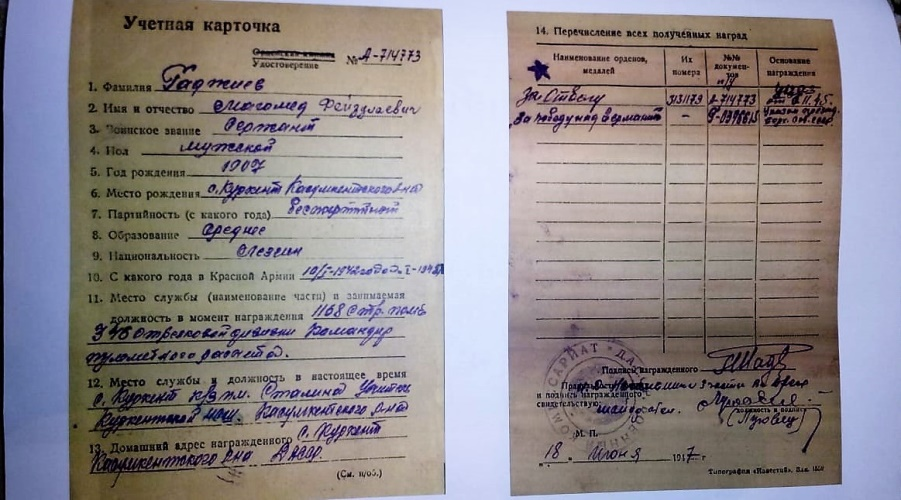 Учетная карточка
Удостоверение № А-714773
1. Фамилия Гаджиев
2. Имя и отчество Магомед Фейзулаевич
3. Воинское звание Сержант
4. Пол мужской
5. Год рождения 1907
6. Место рождения с. Куркент Касумкентского р-на
7. Партийность (с какого года) беспартийный
8. Образование среднее
9. Национальность лезгин
10. С какого года в Красной Армии
11. Место службы (наименование части) и занимаемая
должность в момент награждения 1168 Стр. полк
346 стрелковой дивизии Командир
пулеметного расчета.
12. Место службы и должность в настоящее время
с. Куркент к/з им. Сталина Учитель
Куркентской Касумкентского р-на
13. Домашний адрес награжденного с. Куркент
Касумкентского р-на ДАССР.
(См. н/об.)
14. Перечисление всех полученных наград
Наименование орденов, медалей
Их номера
№№ документов
Основание награждения
За Отвагу А-714773
За победу над Германией –
Подпись награжденного
и подпись награжденного
свидетельствую:
должность и подпись
М. П.
18 Июня 1947 г
Типография «Известий». Зак.